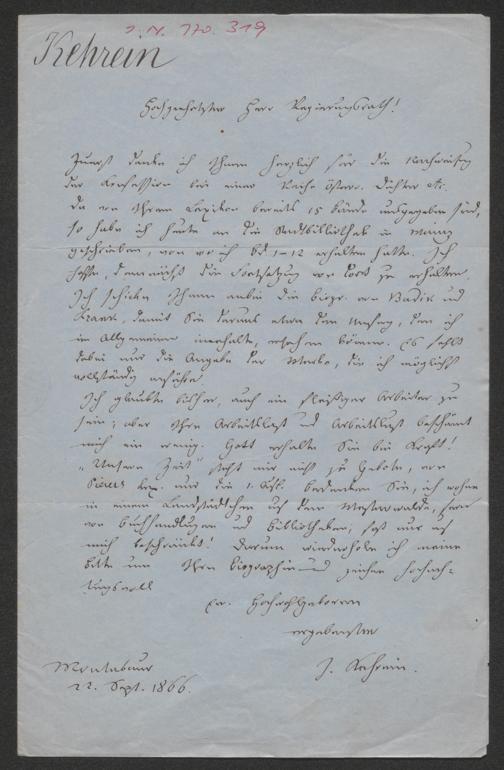 J. N. 170.319
Kehrein
Hochgeehrtester Herr Regierungsrath!
Zuerst danke ich Ihnen herzlich für die Nachweisung
der Confession bei einer Reihe österr. Dichter etc.
Da von Ihrem Lexikon bereits 15 Bände ausgegeben sind,
so habe ich heute an die Stadtbibliothek in Mainz
geschrieben, von wo ich Bd 1–12 erhalten hatte. Ich
hoffe, demnächst die Fortsetzung von dort zu erhalten.
Ich schicke Ihnen anbei die biogr. von und
damit Sie daraus etwa den Umfang, den ich
im Allgemeinen einhalte, ersehen können. Es fehlt
dabei nur die Angabe der Werke, die ich möglichst
vollständig anführe.
Ich glaubte bisher, auch ein fleißiger Arbeiter zu
sein; aber Ihre Arbeitslast und Arbeitslust beschämt
mich ein wenig. Gott erhalte Sie bei Kraft!
„Unsere Zeit" steht mir nicht zu Gebote, von
nur die 1. Aufl. bedenken Sie, ich wohne
in einem Landstädtchen auf dem Westerwalde, fern
von Buchhandlungen und Bibliotheken, fast nur auf
mich beschränkt! Darum wiederhole ich meine
Bitte um Ihre Biographie und zeichne hochach-
tungsvoll
Ew. Hochwohlgeboren
ergebenster
J. Kehrein.
Montabaur
22. Sept. 1866.